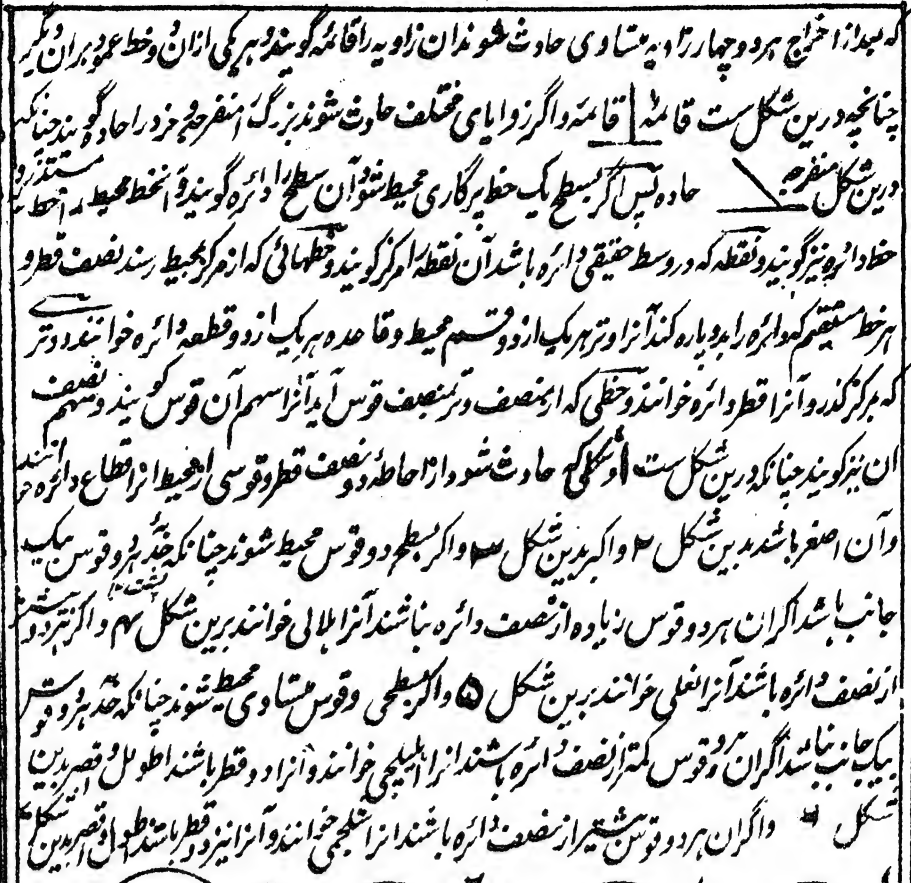 که بعد از اخراج هر دو چهار زاویه متساوی حادث شوند ان زاویه را قائمه گویند و هر یکی ازان دو خط عمود بران دیگر
چنانچه درین شکل ست قائمه قائمه و اگر زوایای مختلف حادث شوند بزرگ را منفرجه و خرد را حاده گویند چنانکه
درین شکل منفرجه حاده پس اگر بسطح یک خط پرکاری محیط شود آن سطح را دائره گویند و آنخط محیط
خط دائره نیز گویند و نقطه که در وسط حقیقی دائره باشد آن نقطه را مرکز گویند و خطهائی که از مرکز بمحیط رسند نصف قطر و
هر خط مستقیم که دائره را بدو پاره کند آنرا وتر هر یک از دو قسم محیط و قاعده هر یک از دو قطعه دائره خوانند و وتر
که بمرکز گذرد آنرا قطر دائره خوانند و خطی که از منصف وتر بمنصف قوس آید آنرا سهم آن قوس گویند و سهم نصف
ان نیز گویند چنانکه درین شکل ست ا و شکلی که حادث شود از احاطه دو نصف قطر و قوسی از محیط انرا قطاع دائره خوانند
و آن اصغر باشد بدین شکل ۲ و اکبر بدین شکل ۳ و اگر بسطح دو قوس محیط شوند چنانکه حدبه هر دو قوس بیک
جانب باشد اگر ان هر دو قوس زیاده از نصف دائره نباشند آنرا هلالی خوانند برین شکل ۴ و اگر هر دو بیشتر
از نصف دائره باشند آنرا نعلی خوانند برین شکل ۵ و اگر بسطحی دو قوس متساوی محیط شوند چنانکه حدبه هر دو قوس
بیک جانب نباشد اگر ان هر دو قوس کمتر از نصف دائره باشند انرا اهلیلجی خوانند و آنرا دو قطر باشند اطول و اقصر بدین
شکل ۶ و اگر ان هر دو قوس بیشتر از نصف دائره باشند انرا شلجمی خوانند و آنرا نیز دو قطر باشند اطول و اقصر بدین شکل